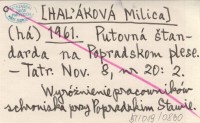 [HAL'ÁKOVÁ Milica]
(há) 1961. Putovná štan-
darda na Popradskom plese.
– Tatr. Nov. 8, nr 20: 2.
Wyróżnienie pracowników
schroniska przy Popradskim Stawie.